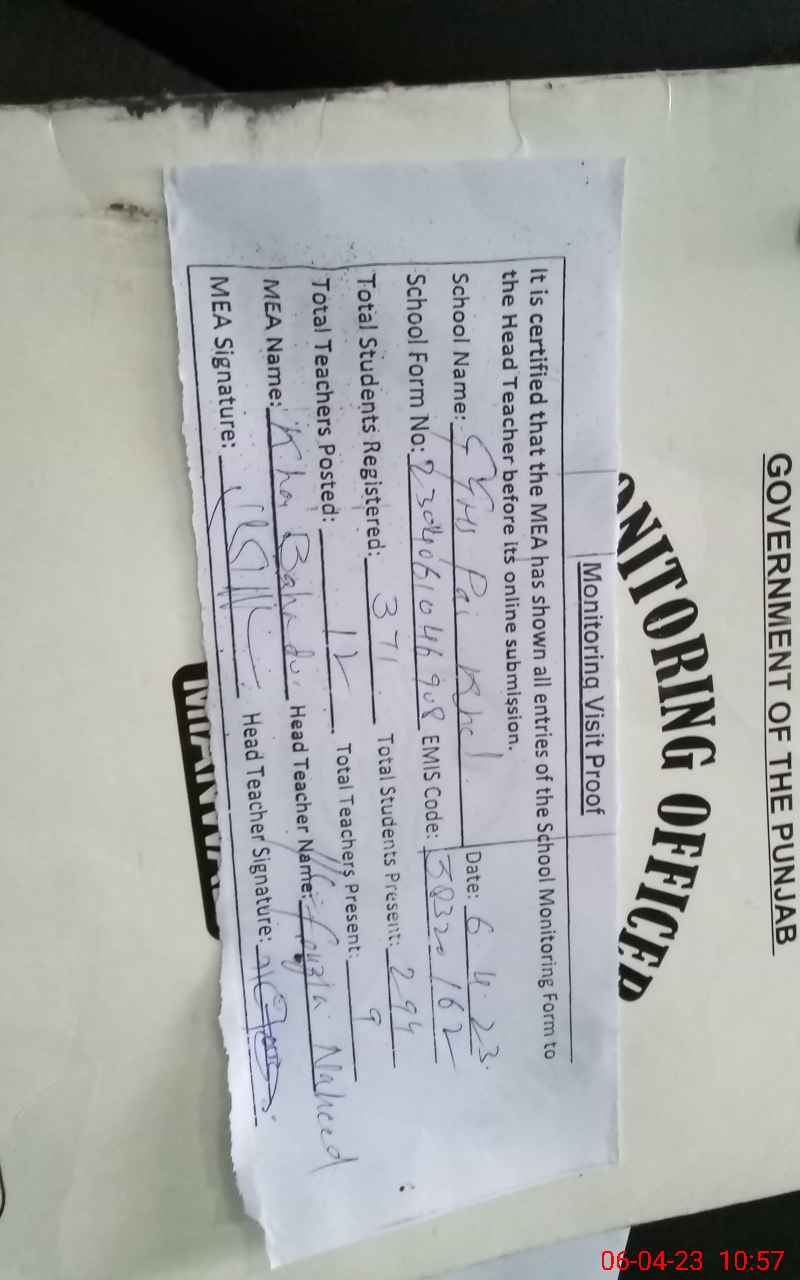 GOVERNMENT OF THE PUNJAB
ONITORING OFFICER
Monitoring Visit Proof
It is certified that the MEA has shown all entries of the School Monitoring Form to
the Head Teacher before its online submission.
School Name: Pai Khel Date: 6 4 23.
School Form No: EMIS Code: 38320162
Total Students Registered: 371 Total Students Present: 294
Total Teachers Posted: 12 Total Teachers Present: 9
MEA Name: Bahadur Head Teacher Name: Fouzia Naheed
MEA Signature: Head Teacher Signature:
06-04-23 10:57